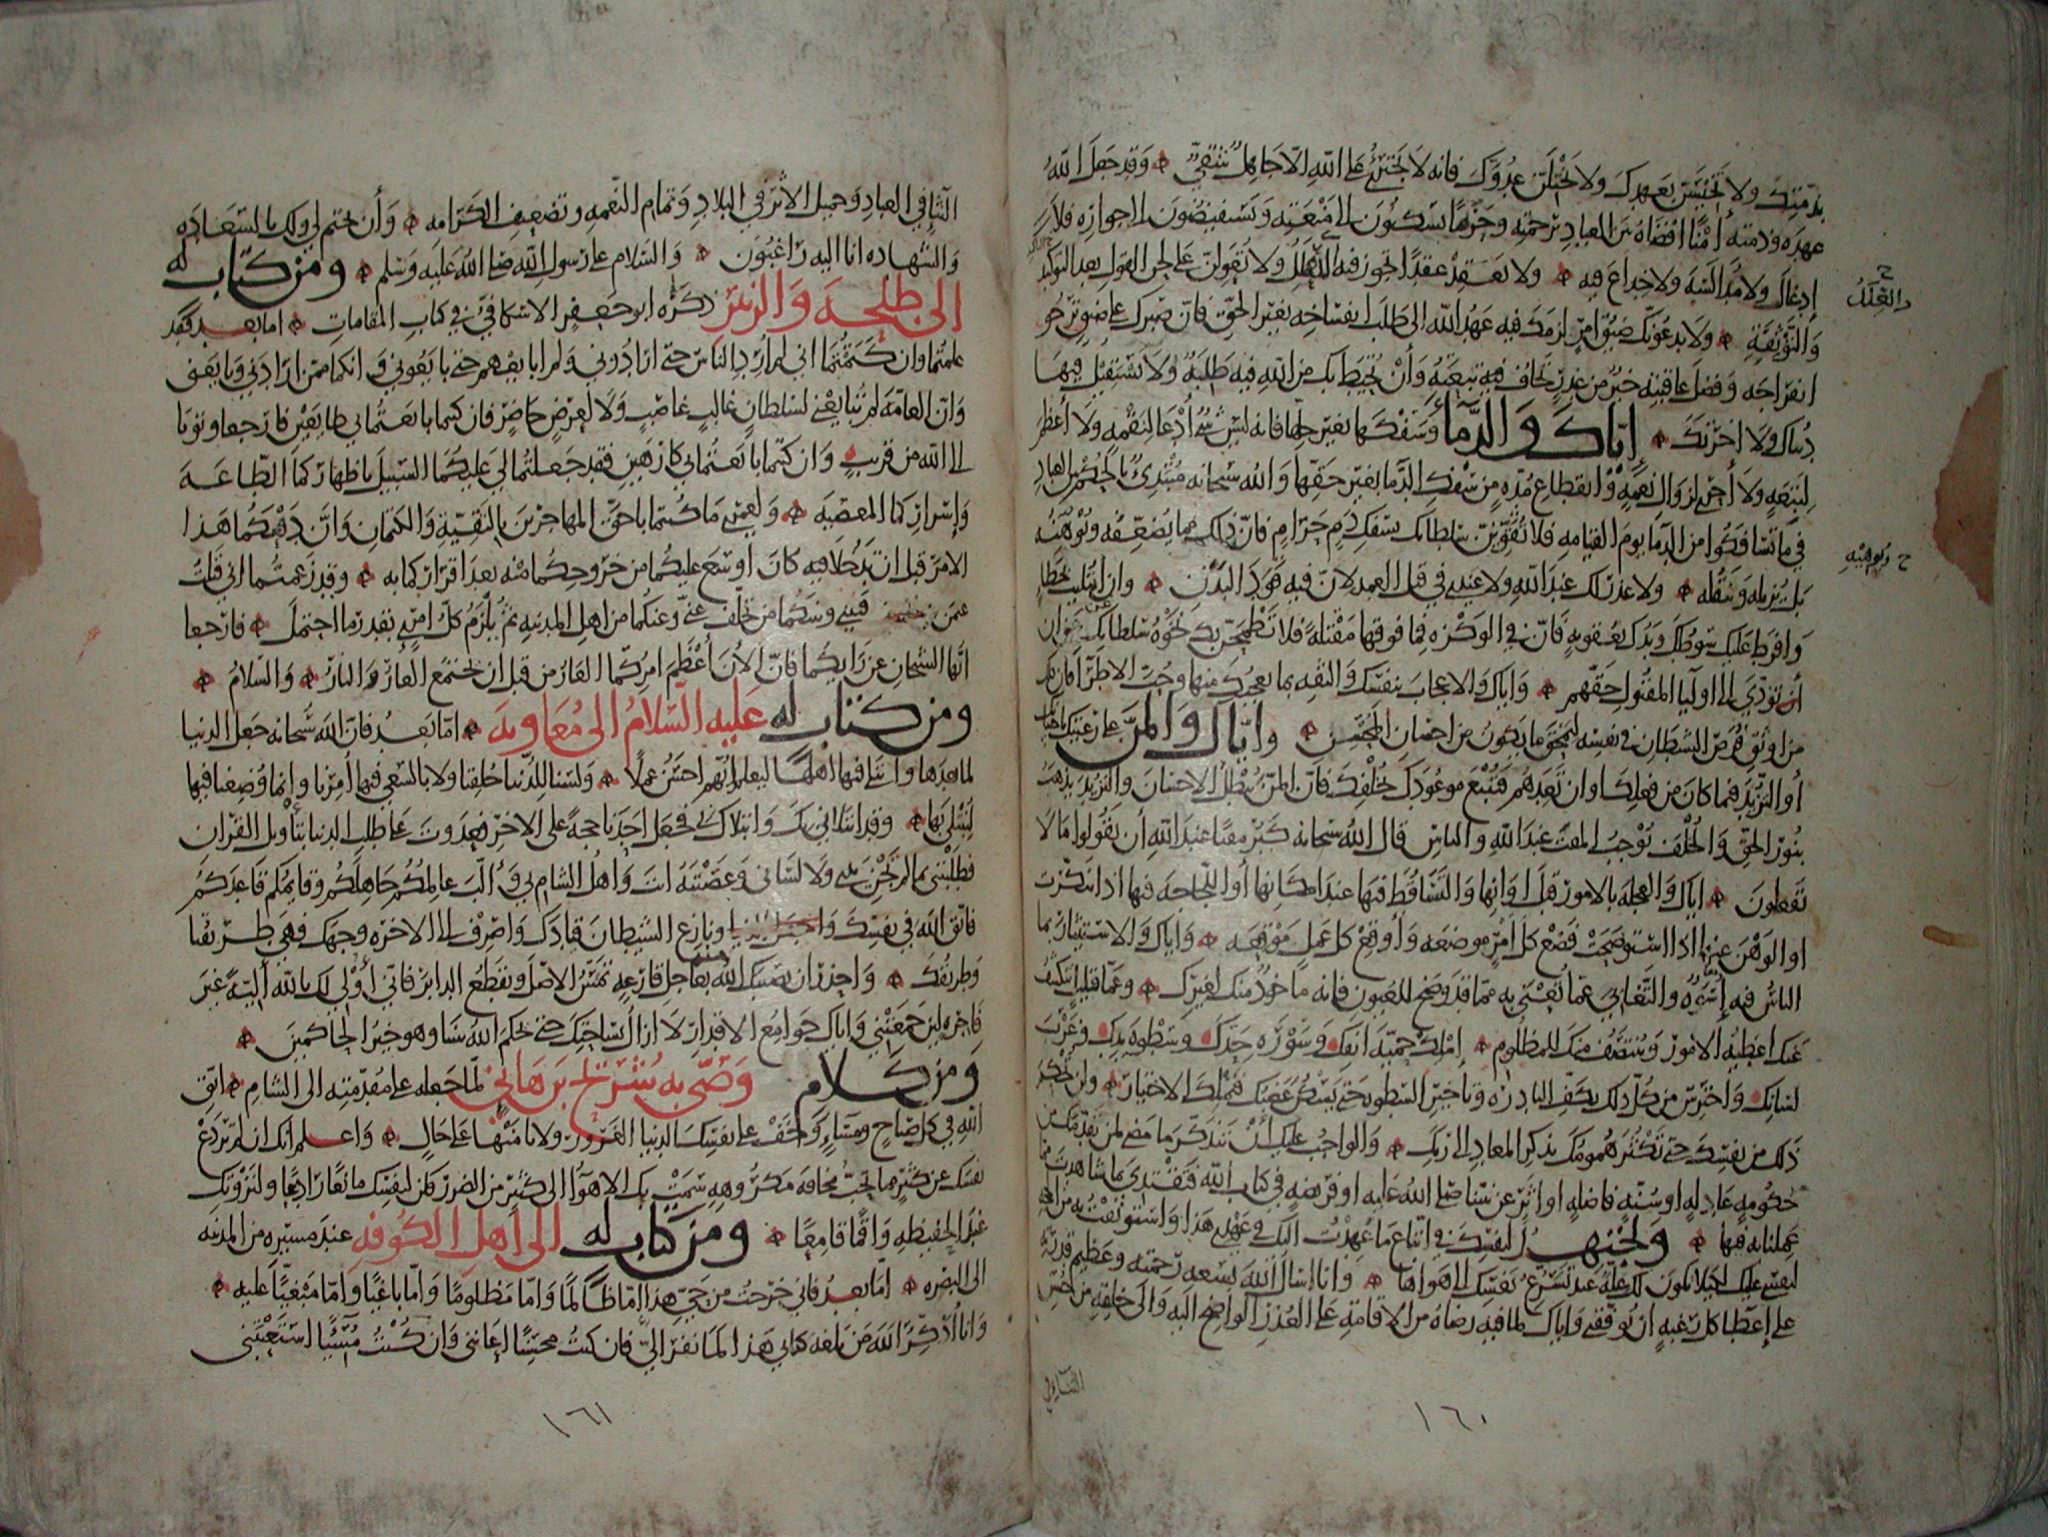 بذمتك ولا تخيسن بعهدك ولا تختلن عدوك فانه لا يجترئ على الله الا جاهل شقي وقد جعل الله
عهده وذمته أمنا افضاه بين العباد برحمته وحريما يسكنون الى منعته ويستفيضون الى جواره فلا
إدغال ولا مدالسة ولا خداع فيه ولا تعقد عقدا تجوز فيه العلل ولا تعولن على لحن القول بعد التوكيد
والعلل
والتوثقة ولا يدعونك ضيق امر لزمك فيه عهد الله الى طلب انفساخه بغير الحق فان صبرك على ضيق ترجو
انفراجه وفضل عاقبته خير من غدر تخاف فيه تبعته وأن تحيط بك من الله فيه طلبة ولا تستقيل فيها
دنياك ولا اخرتك إياك والدماء وسفكها بغير حلها فانه ليس شيء أدعا لنقمه ولا أعظم
لتبعه ولا أحرى بزوال نعمه وانقطاع مده من سفك الدما بغير حقها والله سبحانه مبتدئ بالحكم بين العباد
فيما تسافكوا من الدما يوم القيامه فلا تقوين سلطانك بسفك دم حرام فان ذلك مما يضعفه ويوهنه
ويوهيه
بل يزيله وينقله ولا عذر لك عند الله ولا عندي في قتل العمد لان فيه قود البدن وان ابتليت بخطإ
وافرط عليك سوطك ويدك بعقوبه فان في الوكزه فما فوقها مقتله فلا تطمحن بك نخوة سلطانك عن
أن تؤدي الى اوليا المقتول حقهم واياك والاعجاب بنفسك والثقه بما يعجبك منها وحب الاطرا فان ذلك
من اوثق فرص الشيطان في نفسه ليمحق ما يكون من احسان المحسن واياك والمن على رعيتك باحسانك
أو التزيد فيما كان من فعلك وان تعدهم فتتبع موعودك بخلفك فان المن يبطل الاحسان والتزيد يذهب
بنور الحق والخلف يوجب المقت عند الله والناس قال الله سبحانه كبر مقتا عند الله أن تقولوا ما لا
تفعلون اياك والعجله بالامور قبل اوانها والتساقط فيها عند امكانها أو اللجاجه فيها اذا تنكرت
او الوهن عنها اذا استوضحت فضع كل أمر موضعه وأوقع كل عمل موقعه واياك والاستيثار بما
الناس فيه إسوة والتغابي عما تعنى به مما قد وضح للعيون فانه ماخوذ منك لغيرك وعما قليل تنكشف
عنك اغطيه الامور وينتصف منك للمظلوم املك حمية انفك وسورة حدك وسطوة يدك وغرب
لسانك واحترس من كل ذلك بكف البادره وتاخير السطوه حتى يسكن غضبك فتملك الاختيار ولن تحكم
ذلك من نفسك حتى تكثر همومك بذكر المعاد الى ربك والواجب عليك أن تتذكر ما مضى لمن تقدمك من
حكومه عادله او سنه فاضله او اثر عن نبينا صلى الله عليه او فريضه في كتاب الله فتقتدي بما شاهدت مما
عملنا به فيها وتجتهد لنفسك في اتباع ما عهدت اليك في عهدي هذا واستوثقت به من الحجة
لنفسي عليك لكيلا تكون لك علة عند تسرع نفسك الى هواها وانا اسال الله بسعة رحمته وعظيم قدرته
على إعطا كل رغبه ان يوفقني واياك لما فيه رضاه من الاقامة على العذر الواضح اليه والى خلقه من حسن
الثناء في
١٦٠
الثنا في العباد وجميل الاثر في البلاد وتمام النعمه وتضعيف الكرامه وأن يختم لي ولك بالسعاده
والشهاده انا اليه راغبون والسلام على رسول الله صلى الله عليه وسلم ومن كتاب له
الى طلحة والزبير ذكره ابو جعفر الاسكافي في كتاب المقامات اما بعد فقد
علمتما وان كتمتما اني لم أرد الناس حتى ارادوني ولم ابايعهم حتى بايعوني وانكما ممن ارادني وبايعني
وان العامة لم تبايعني لسلطان غالب غاصب ولا لعرض حاضر فان كنتما بايعتماني طايعين فارجعا وتوبا
الى الله من قريب وان كنتما بايعتماني كارهين فقد جعلتما لي عليكما السبيل باظهاركما الطاعة
وإسراركما المعصيه ولعمري ما كنتما باحق المهاجرين بالتقية والكتمان وان دفعكما هذا
الامر قبل ان تدخلا فيه كان أوسع عليكما من خروجكما منه بعد اقراركما به وقد زعمتما اني قتلت
عثمن فبيني وبينكما من تخلف عني وعنكما من اهل المدينه ثم يلزم كل امرئ بقدر ما احتمل فارجعا
ايها الشيخان عن رايكما فان الآن أعظم امركما العار من قبل ان يجتمع العار والنار والسلام
ومن كتاب له عليه السلام الى معاوية اما بعد فان الله سبحانه جعل الدنيا
لما بعدها وابتلى فيها اهلها ليعلم ايهم احسن عملا ولسنا للدنيا خلقنا ولا بالسعي فيها أمرنا وإنما وضعنا فيها
لنبتلى بها وقد ابتلاني بك وابتلاك بي فجعل احدنا حجة على الاخر فعدوت على طلب الدنيا بتأويل القران
فطلبتني بما لم تجن يدي ولا لساني وعصبته انت واهل الشام بي وألب عالمكم جاهلكم وقايمكم قاعدكم
فاتق الله في نفسك ونازع الشيطان قيادك واصرف الى الاخره وجهك فهي طريقنا
وطريقك واحذر ان يصيبك الله منه بعاجل قارعه تمس الاصل وتقطع الدابر فاني أولي لك بالله ألية غير
فاجره لئن جمعتني واياك جوامع الاقدار لا ازال بساحتك حتى يحكم الله بيننا وهو خير الحاكمين
ومن كلام وصى به شريح بن هاني لما جعله على مقدمته الى الشام اتق
الله في كل صباح ومساء وخف على نفسك الدنيا الغرور ولا تامنها على حال واعلم انك ان لم تردع
نفسك عن كثير مما تحب مخافة مكروهه سمت بك الاهواء الى كثير من الضرر فكن لنفسك مانعا رادعا ولنزوتك
عند الحفيظه واقما قامعا ومن كتاب له الى اهل الكوفه عند مسيره من المدينه
الى البصره اما بعد فاني خرجت من حيي هذا اما ظالما واما مظلوما واما باغيا واما مبغيا عليه
وانا أذكر الله من بلغه كتابي هذا لما نفر الي فان كنت محسنا اعانني وان كنت مسيئا استعتبني
١٦١